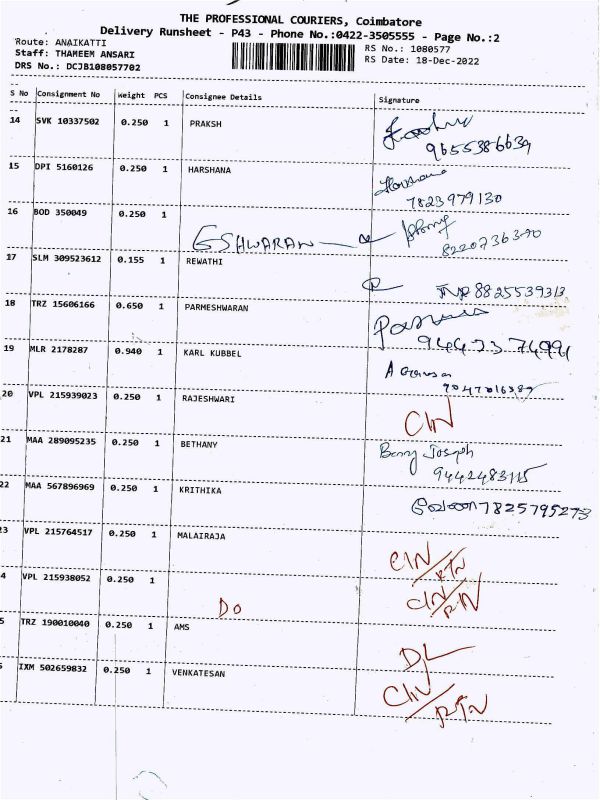 THE PROFESSIONAL COURIERS, Coimbatore
Delivery Runsheet - P43 - Phone No.:0422-3505555 - Page No.:2
Route: ANAIKATTI
RS No.: 1080577
Staff: THAMEEM ANSARI
RS Date: 18-Dec-2022
DRS No.: DCJB108057702
S No Consignment No Weight PCS Consignee Details Signature
14 SVK 10337502 0.250 1 PRAKSH
9655386639
15 DPI 5160126 0.250 1 HARSHANA
Harshana
7823979130
16 BOD 350049 0.250 1
ESHWARAN
8220736390
17 SLM 309523612 0.155 1 REWATHI
8825539313
18 TRZ 15606166 0.650 1 PARMESHWARAN
9442374991
19 MLR 2178287 0.940 1 KARL KUBBEL
20 VPL 215939023 0.250 1 RAJESHWARI
CIN
21 MAA 289095235 0.250 1 BETHANY
Joseph
22 MAA 567896969 0.250 1 KRITHIKA
7825795273
23 VPL 215764517 0.250 1 MALAIRAJA
CIN/RTN
4 VPL 215938052 0.250 1
DO
CIN/RTN
5 TRZ 190010040 0.250 1 AMS
DL
IXM 502659832 0.250 1 VENKATESAN
CIN/RTN